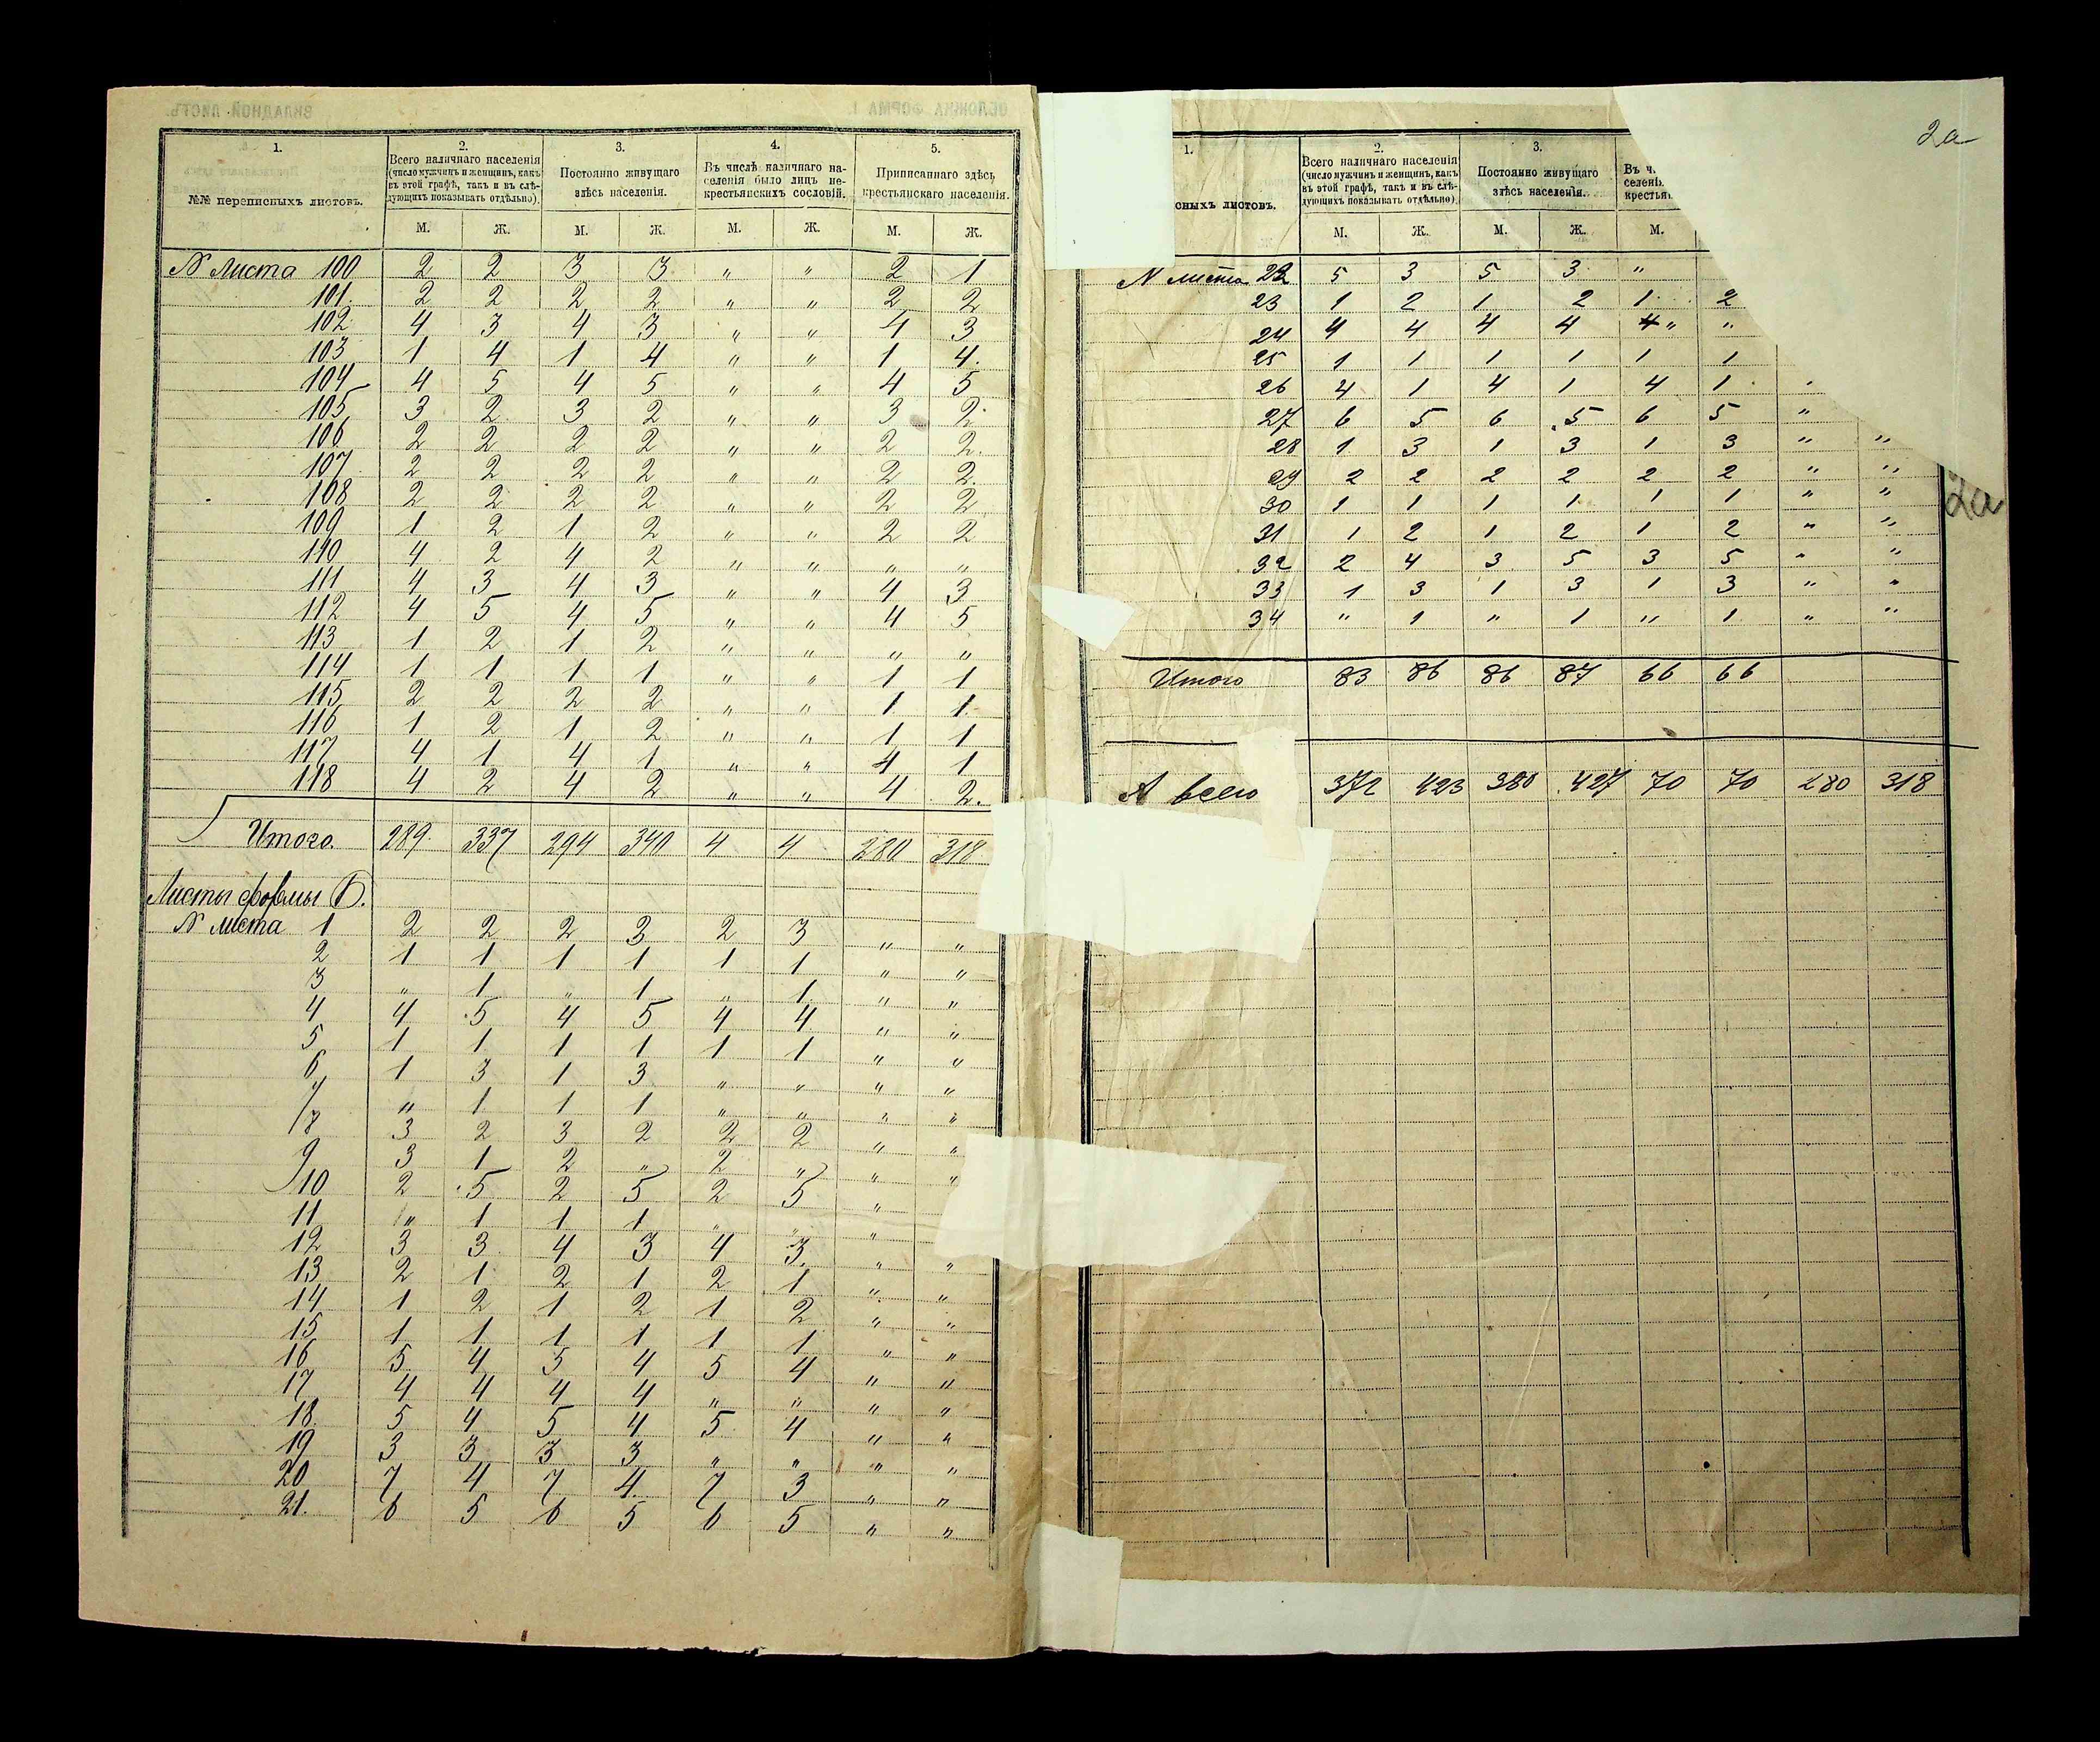 1.
2.
3.
4.
5.
№№ переписныхъ листовъ.
Всего наличнаго населенія
(число мужчинъ и женщинъ, какъ
въ этой графѣ, такъ и въ слѣ-
дующихъ показывать отдѣльно).
Постоянно живущаго
здѣсь населенія.
Въ числѣ наличнаго на-
селенія было лицъ не-
крестьянскихъ сословій.
Приписаннаго здѣсь
крестьянскаго населенія.
М. Ж. М. Ж. М. Ж. М. Ж.
N листа 100 2 2 3 3 " " 2 1
101. 2 2 2 2 " " 2 2
102 4 3 4 3 " " 4 3
103 1 4 1 4 " " 1 4.
104 4 5 4 5 " " 4 5
105 3 2 3 2 " " 3 2.
106 2 2 2 2 " " 2 2.
107 2 2 2 2 " " 2 2.
108 2 2 2 2 " " 2 2
109 1 2 1 2 " " 2 2
110 4 2 4 2 " " " "
111 4 3 4 3 " " 4 3
112 4 5 4 5 " " 4 5
113 1 2 1 2 " " " "
114 1 1 1 1 " " 1 1
115 2 2 2 2 " " 1 1.
116 1 2 1 2 " " 1 1
117 4 1 4 1 " " 4 1
118 4 2 4 2 " " 4 2.
Итого. 289. 337 294 340 4 4 280 318
Листы формы Б.
N листа 1 2 2 2 3 2 3 " "
2 1 1 1 1 1 1 " "
3 " 1 " 1 " 1 " "
4 4 5 4 5 4 4 " "
5 1 1 1 1 1 1 " "
6 1 3 1 3 " " " "
7 " 1 1 1 " " " "
8 3 2 3 2 2 2 " "
9 3 1 2 " 2 " " "
10 2 5 2 5 2 5 "
11 " 1 1 1 " " "
12 3 3 4 3 4 3. " "
13 2 1 2 1 2 1 " "
14 1 2 1 2 1 2 " "
15 1 1 1 1 1 1 " "
16 5 4 5 4 5 4 " "
17 4 4 4 4 " " " "
18. 5 4 5 4 5 4 " "
19 3 3 3 3 " " " "
20 7 4 7 4. 7 3 " "
21. 6 5 6 5 6 5 " "
2а
1.
2.
3.
сныхъ листовъ.
Всего наличнаго населенія
(число мужчинъ и женщинъ, какъ
въ этой графѣ, такъ и въ слѣ-
дующихъ показывать отдѣльно).
Постоянно живущаго
здѣсь населенія.
Въ ч
селені
крестья
М. Ж. М. Ж. М.
N листа 22 5 3 5 3 "
23 1 2 1 2 1 2
24 4 4 4 4 " "
25 1 1 1 1 1 1
26 4 1 4 1 4 1
27 6 5 6 5 6 5 "
28 1 3 1 3 1 3 " "
29 2 2 2 2 2 2 " "
30 1 1 1 1 1 1 " "
2а
31 1 2 1 2 1 2 " "
32 2 4 3 5 3 5 " "
33 1 3 1 3 1 3 " "
34 " 1 " 1 " 1 " "
Итого 83 86 86 87 66 66
А всего 372 423 380 427 70 70 280 318